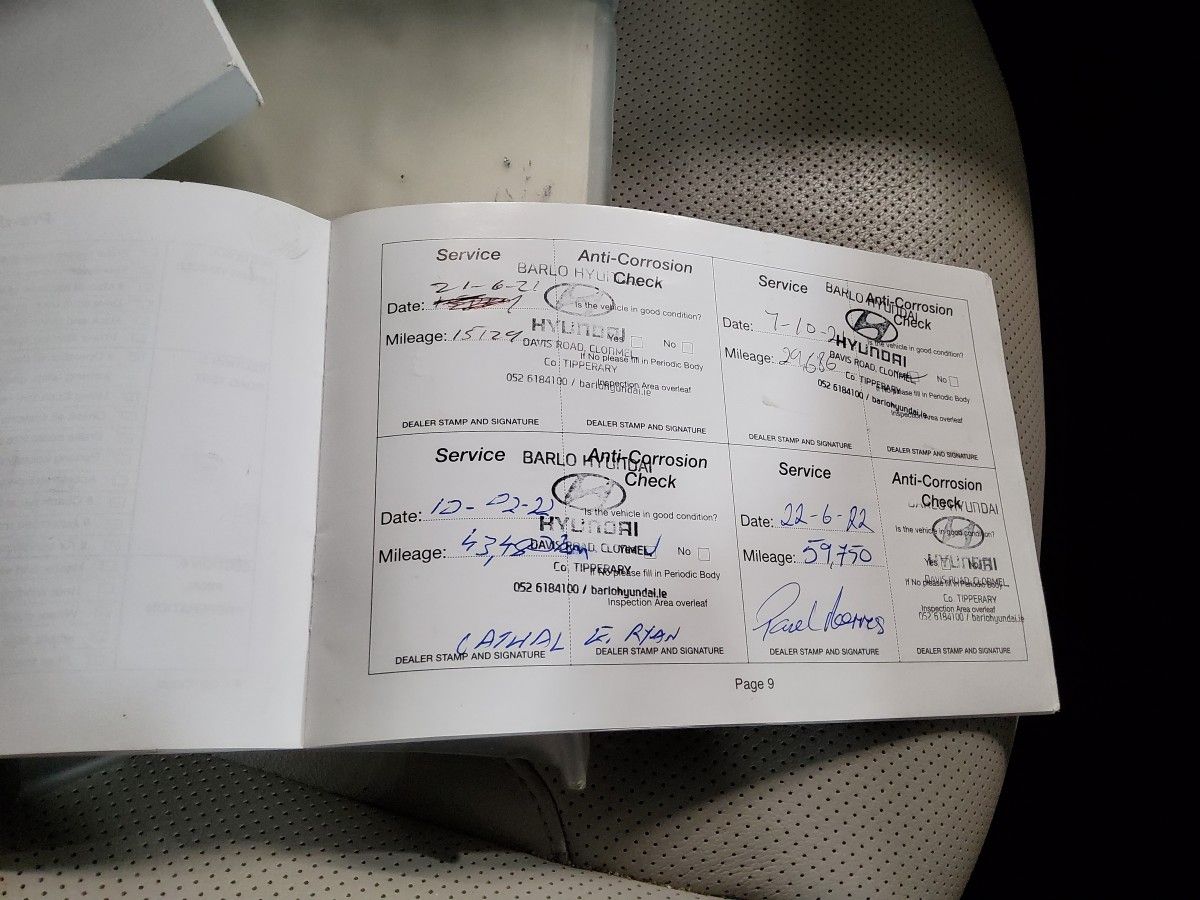 Service
Anti-Corrosion
Check
BARLO HYUNDAI
21-6-21
Date:
Is the vehicle in good condition?
HYUNDAI
Mileage: 15129
Yes No
DAVIS ROAD, CLONMEL
If No please fill in Periodic Body
Co. TIPPERARY
Inspection Area overleaf
052 6184100 / barlohyundai.ie
DEALER STAMP AND SIGNATURE
DEALER STAMP AND SIGNATURE
Service
Anti-Corrosion
Check
BARLO HYUNDAI
Date: 7-10-21
Is the vehicle in good condition?
HYUNDAI
Mileage: 29,686
No
DAVIS ROAD, CLONMEL
If No please fill in Periodic Body
Co. TIPPERARY
Inspection Area overleaf
052 6184100 / barlohyundai.ie
DEALER STAMP AND SIGNATURE
DEALER STAMP AND SIGNATURE
Service
Anti-Corrosion
Check
BARLO HYUNDAI
Date: 10-02-22
Is the vehicle in good condition?
HYUNDAI
Mileage:
Yes No
DAVIS ROAD, CLONMEL
If No please fill in Periodic Body
Co. TIPPERARY
Inspection Area overleaf
052 6184100 / barlohyundai.ie
CATHAL E. RYAN
DEALER STAMP AND SIGNATURE
DEALER STAMP AND SIGNATURE
Service
Anti-Corrosion
Check
BARLO HYUNDAI
Date: 22-6-22
Is the vehicle in good condition?
HYUNDAI
Mileage: 59,750
Yes No
DAVIS ROAD, CLONMEL
If No please fill in Periodic Body
Co. TIPPERARY
Inspection Area overleaf
052 6184100 / barlohyundai.ie
DEALER STAMP AND SIGNATURE
DEALER STAMP AND SIGNATURE
Page 9